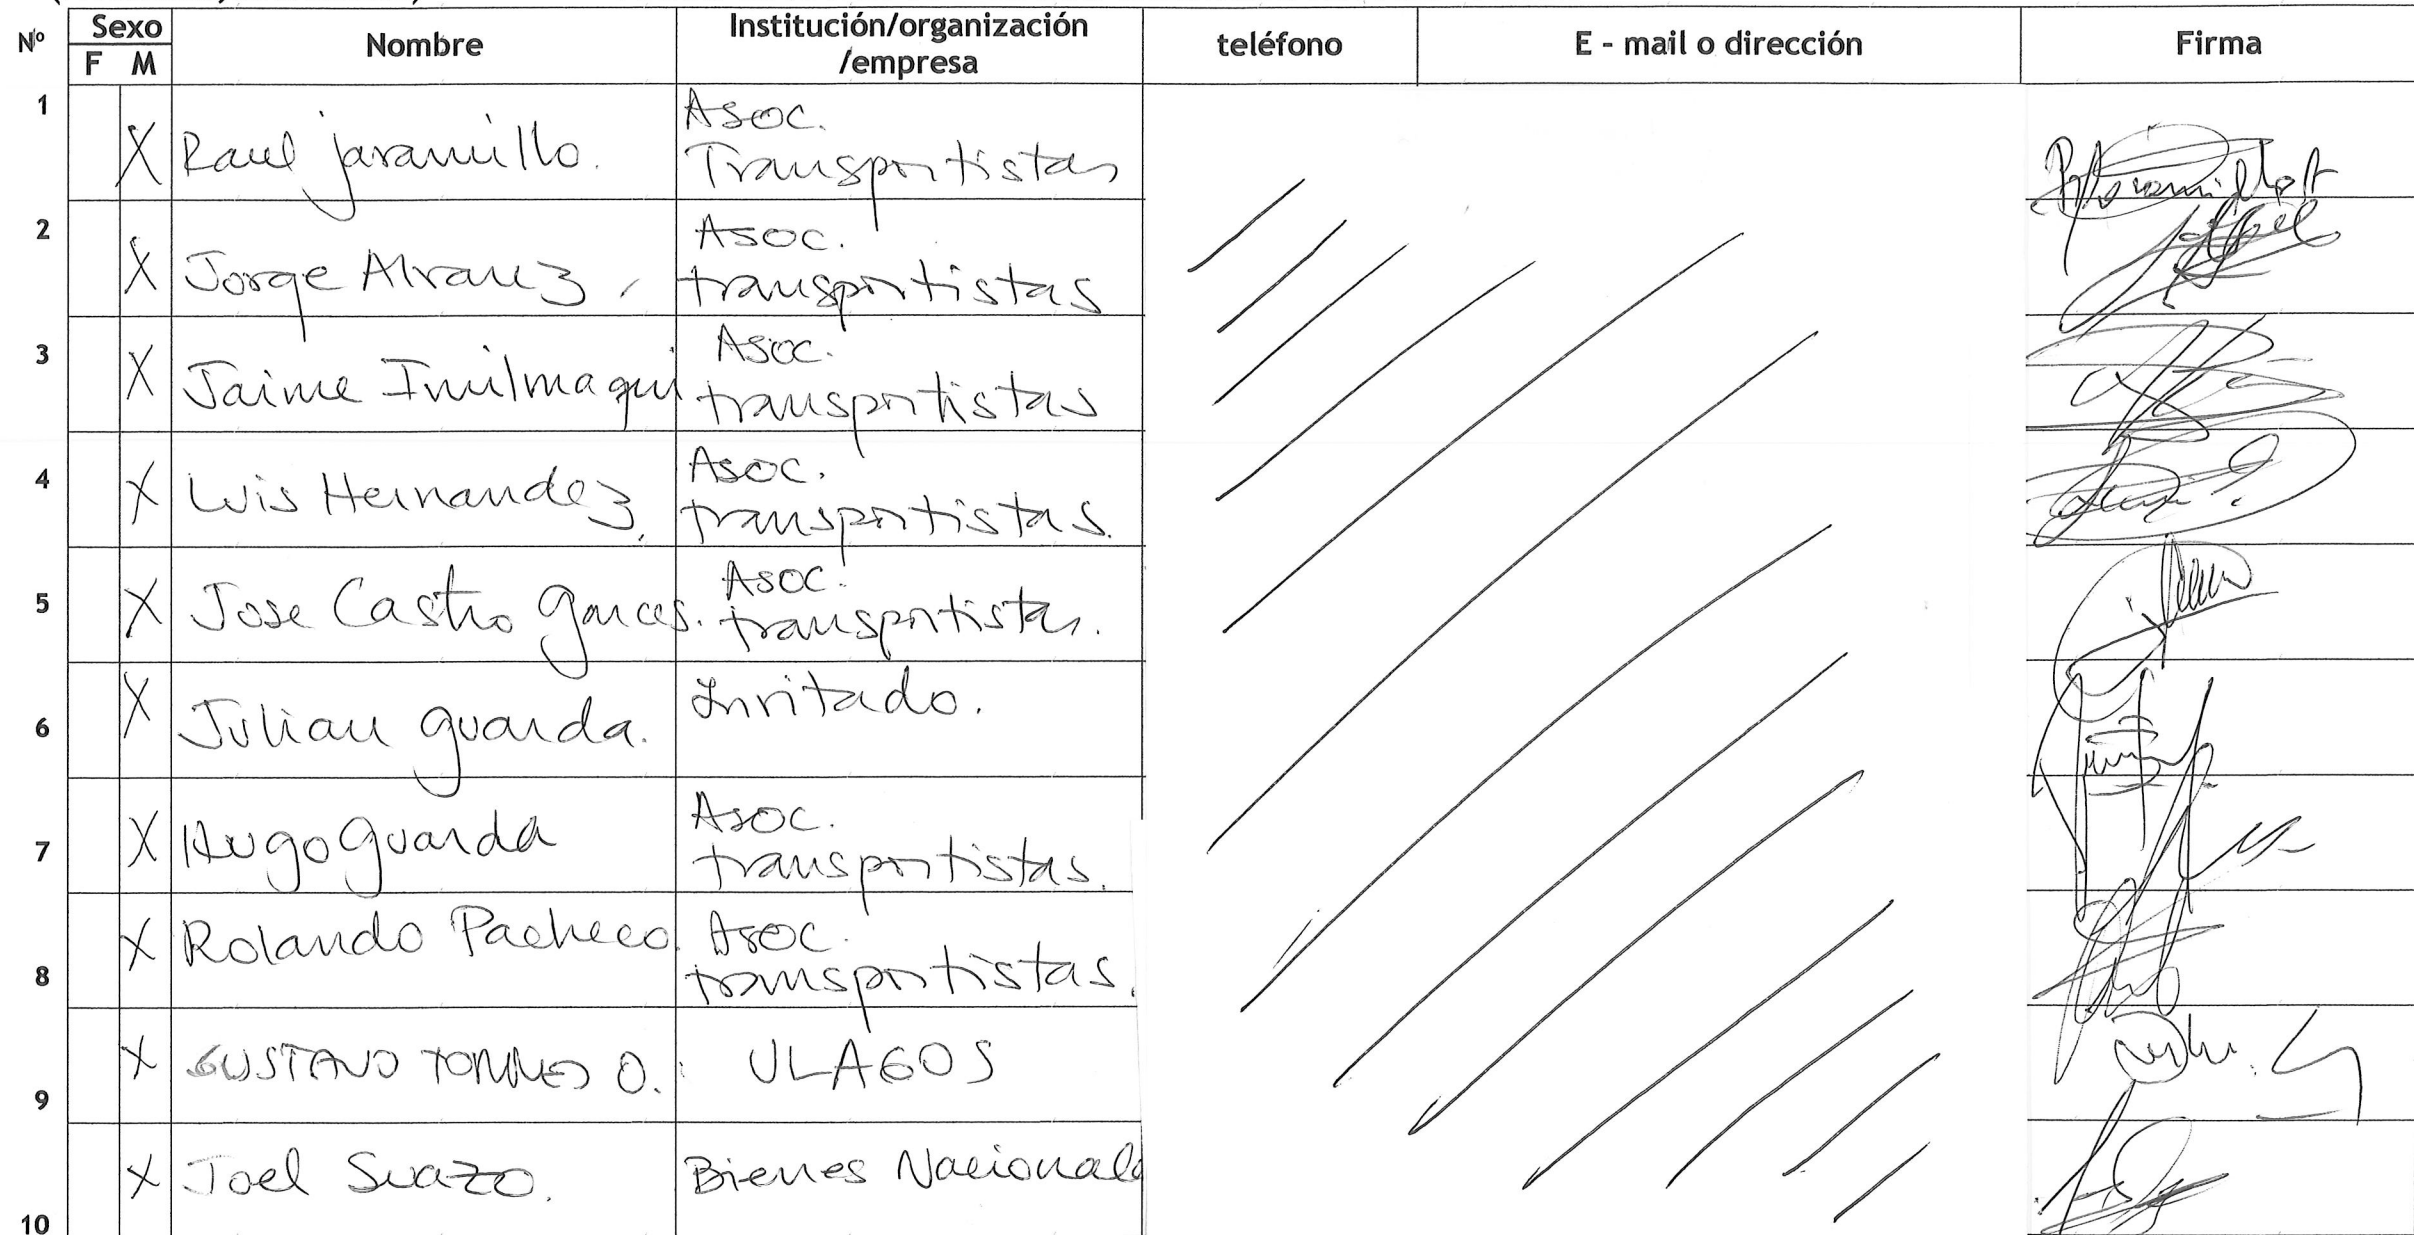 Nº Sexo Nombre Institución/organización teléfono E - mail o dirección Firma
F M /empresa
1 X Raul jaramillo. Asoc.
Transportistas
2 X Jorge Alvarez, Asoc.
transportistas
3 X Jaime Inilmaqui Asoc.
transportistas
4 X Luis Hernandez, Asoc.
transportistas.
5 X Jose Castro garces. Asoc.
transportistas.
6 X Julian guarda. Invitado.
7 X Hugo guarda Asoc.
transportistas.
8 X Rolando Pacheco. Asoc.
transportistas.
9 X GUSTAVO TORRES O. ULAGOS
10 X Joel Suazo. Bienes Nacionale